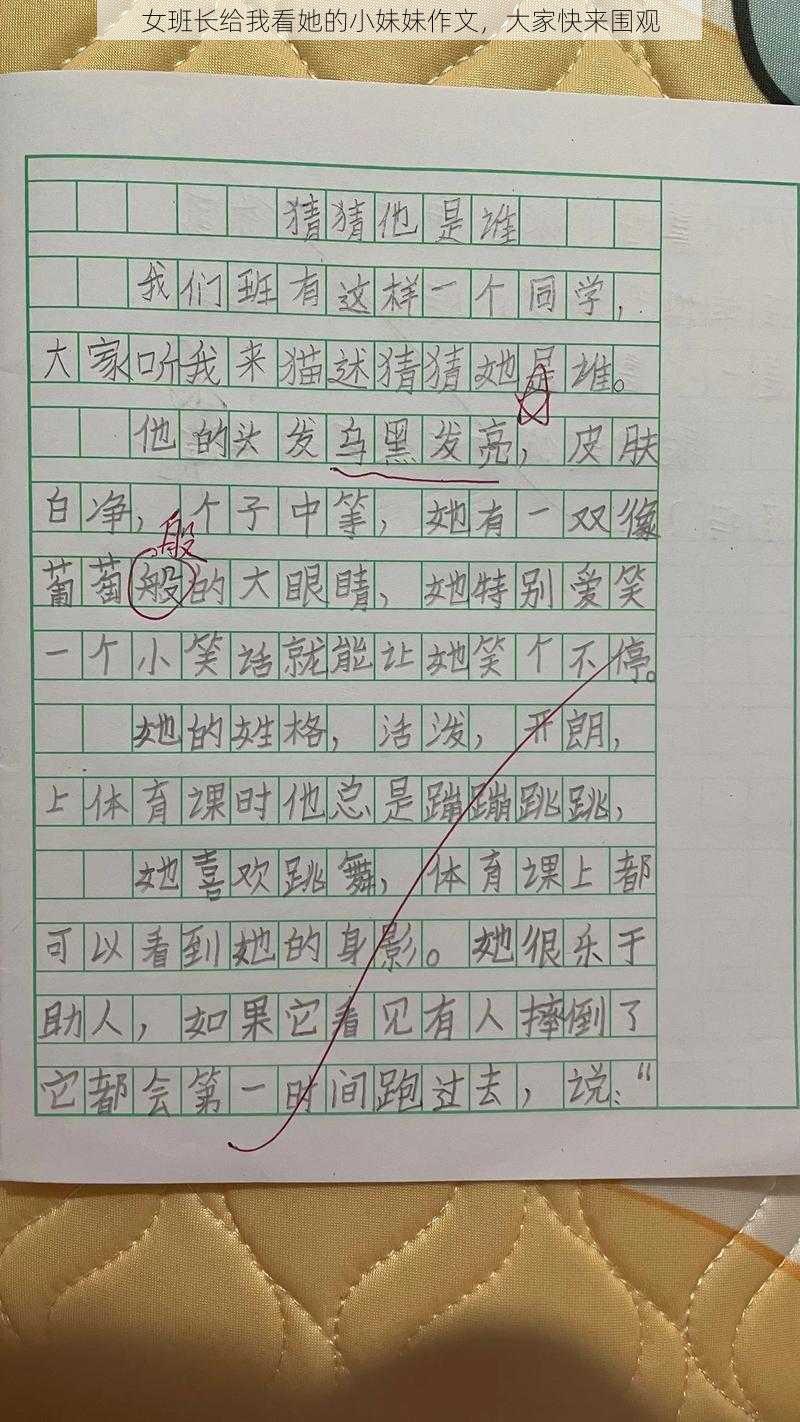 女班长给我看她的小妹妹作文，大家快来围观
猜猜他是谁
我们班有这样一个同学，
大家听我来猫述猜猜她是谁。
他的头发乌黑发亮，皮肤
白净，个子中等，她有一双像
般
葡萄般的大眼睛，她特别爱笑
一个小笑话就能让她笑个不停。
她的姓格，活泼，开朗，
上体育课时他总是蹦蹦跳跳，
她喜欢跳舞，体育课上都
可以看到她的身影。她很乐于
助人，如果它看见有人摔倒了
它都会第一时间跑过去，说：“